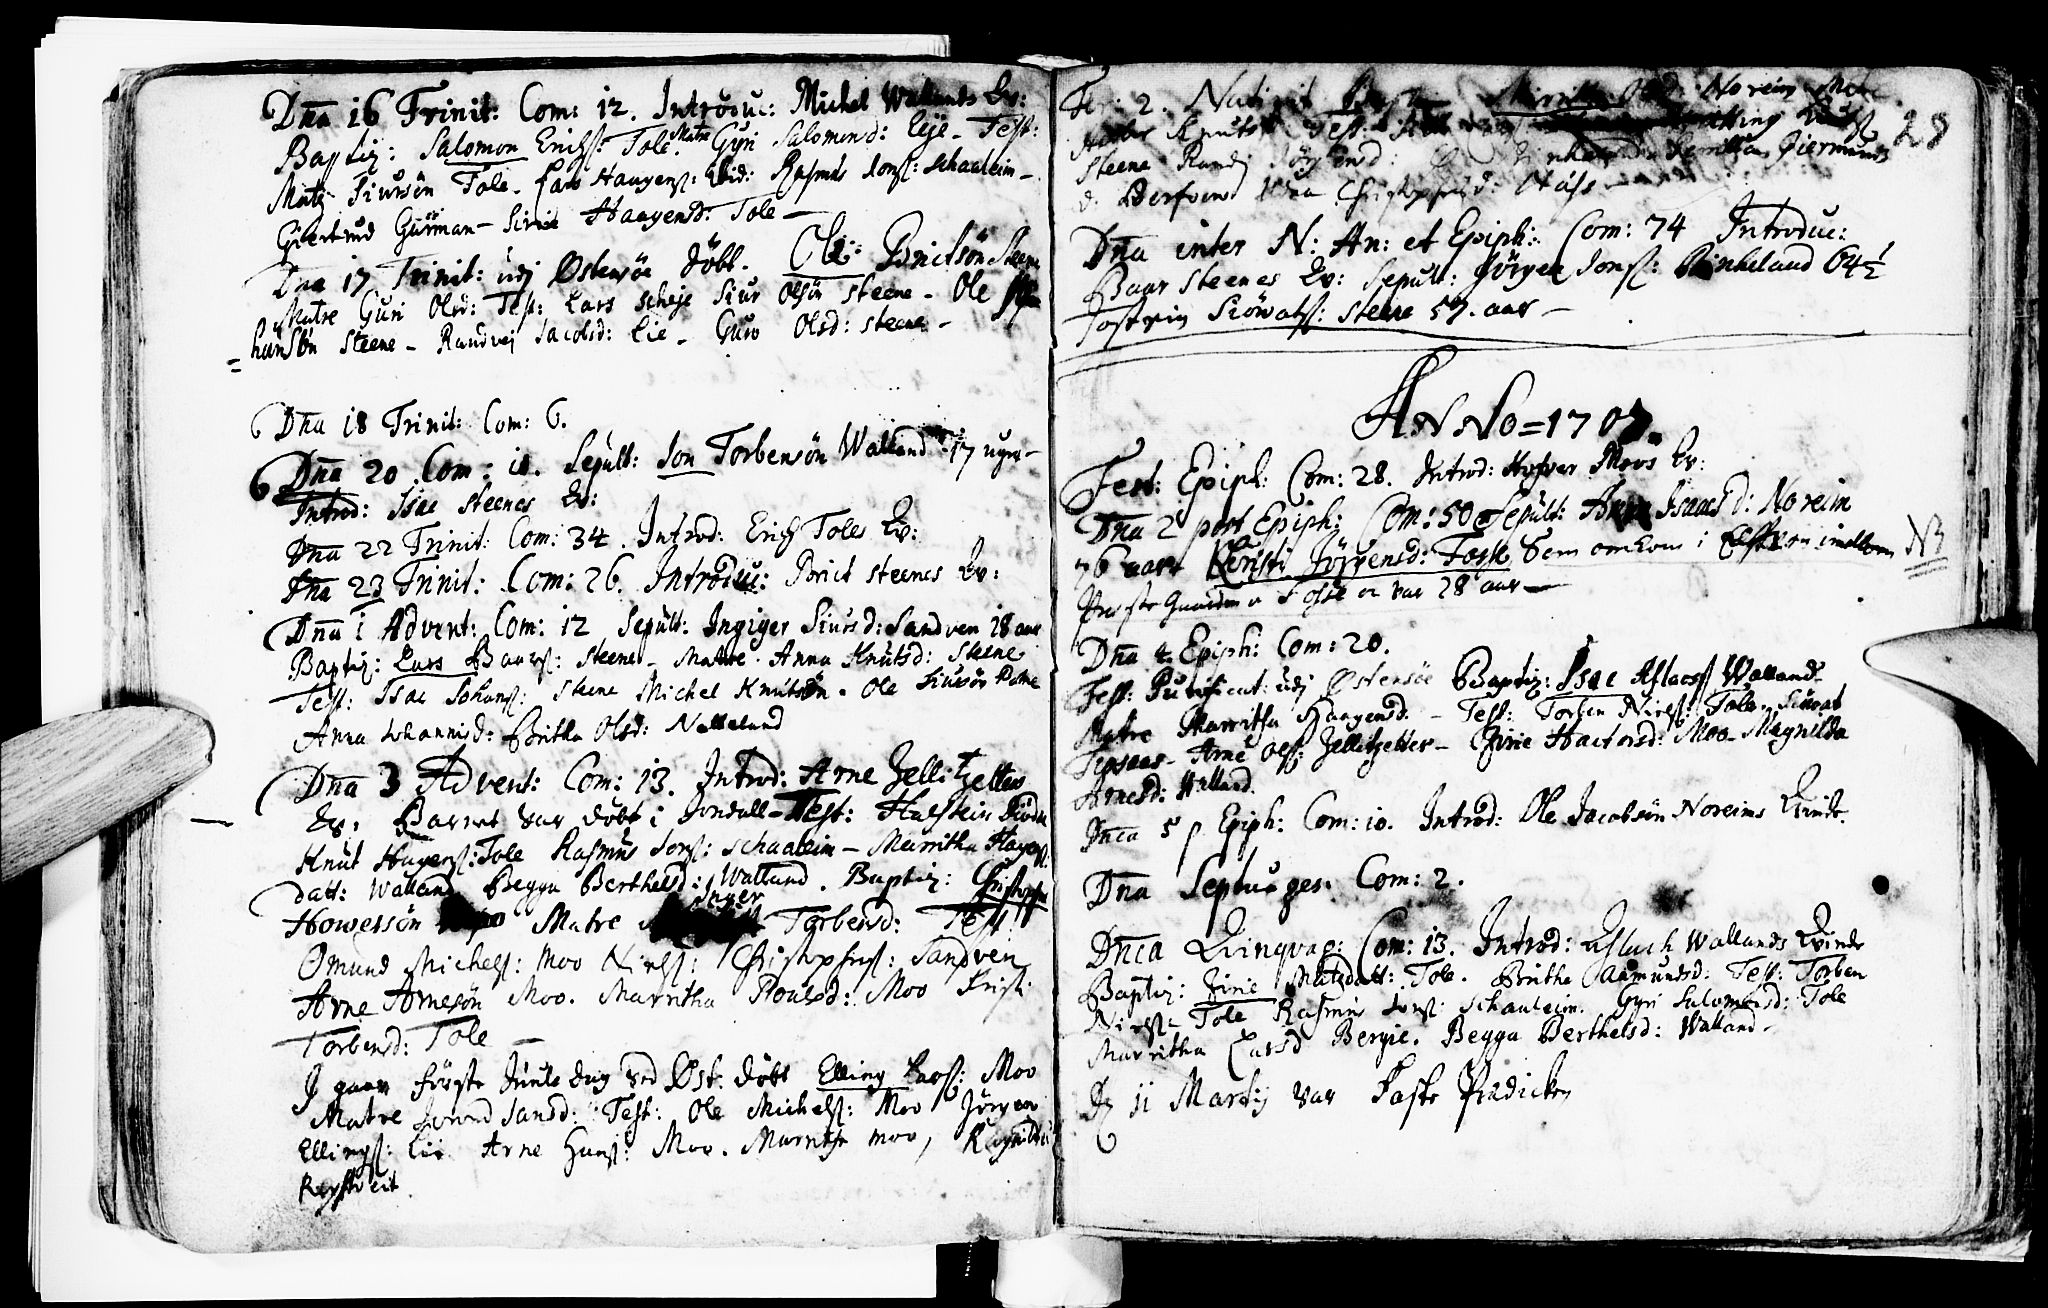 Dna 16 Trinit: Com: 12. Introduc: Michel Wallands Qv:
Baptiz: Salomon Erichs: Tole. Matre Gyri Salomond: Eje - Test:
Matz Siursön Tole. Lars Haagens: Eid: Rasmus Jons: Schaaleim -
Giertrud Gurman - Sirie Haagensd: Tole -
Dna 17 Trinit: udj Östensöe döbt. Ole Brictsön Steene
Matre Guri Olsd: Test: Lars Scheje Siur Olsön Steene - Ole
hansön Steene - Randvej Jacobsd: Lie - Guro Olsd: Steene -
Dna 18 Trinit: Com: 6.
Dna 20 Com: 10. Sepult: Jon Torbensön Walland 17 uger -
Introd: Isac Steenes Qv:
Dna 22 Trinit: Com: 34. Introd: Erich Toles Qv:
Dna 23 Trinit: Com: 26. Introduc: Brict Steenes Qv:
Dna 1 Advent: Com: 12 Sepult: Ingiger Siursd: Sandven 28 aar
Baptiz: Lars Baars: Steene - Matre Anna Knutsd: Steene
Test: Isac Johans: Steene Michel Knutsön - Ole Siursön
Anna Johannisd: Britha Olsd: Nettelund
Dna 3 Advent: Com: 13. Introd: Arne Zellitzetters
Qv: Barnet var döbt i Jondall - Test: Halstein
Knut Hagens: Tole Rasmus Jons: Schaaleim - Marritha Hagens
datt: Walland Begga Berthelsd: Walland. Baptiz: Christopher
Howersön Matre Inger Torbensd: Test:
Omund Michels: Moo Niels: Christophers: Sandven
Arne Arnesön Moo. Marritha Poulsd: Moo
Torbensd: Tole -
J gaar förste Juule dag ved Öst. döbt Elling Lars: Moo
Matre Jansd: Test: Ole Michels: Moo Jörgen
Ellings: Lie Arne Hans: Moo. Marritha Moo, Ragnilda
Röystveit
28
Fer: 2. Nativit Noreim Matre
Knuts Test:
Steene Randj Jörgensd:
d: Berfven Christophersd:
Dna inter N: An: et Epiph: Com: 74 Introduc:
Baar Steenes Qv: Sepult: Jörgen Jons: Rinkeland 64 1/2
Jostein Siöwats: Steene 57. aar -
ANNo = 1707.
Fest: Epiph: Com: 28. Introd: Moos Qv:
Dna 2 post Epiph: Com: 50 Sepult: Anna Isaacsd: Noreim
76 aar Kersti Jörgensd: Fosse Som omkom i Elfven imellom NB
Guarden Fosse var 28 aar -
Dna 4. Epiph: Com: 20.
Fest: Purificat: udj Östensöe Baptiz: Isac Aslacs: Walland
Matre Marritha Haagensd. - Test: Torben Niels: Tole. Siuvat
Tepsaas - Arne Ols: Zellitzetter - Zirie Hactorsd: Moo - Magnilda
Arnesd: Walland.
Dnica 5 p Epiph: Com: 10. Introd: Ole Jacobsön Noreims Qvinde.
Dna Septuages. Com: 2.
Dnica Qvinqvag: Com: 13. Introd: Aslach Wallands Qvinde
Baptiz: Zirie Matzdatt: Tole. Britha Aamundsd: Test: Torben
Niels: Tole Rasmus Jons: Schaaleim. Gyri Salomonsd: Tole
Marritha Larsd Bergie. Begga Berthelsd: Walland -
D 11 Martij var Faste Prædicken